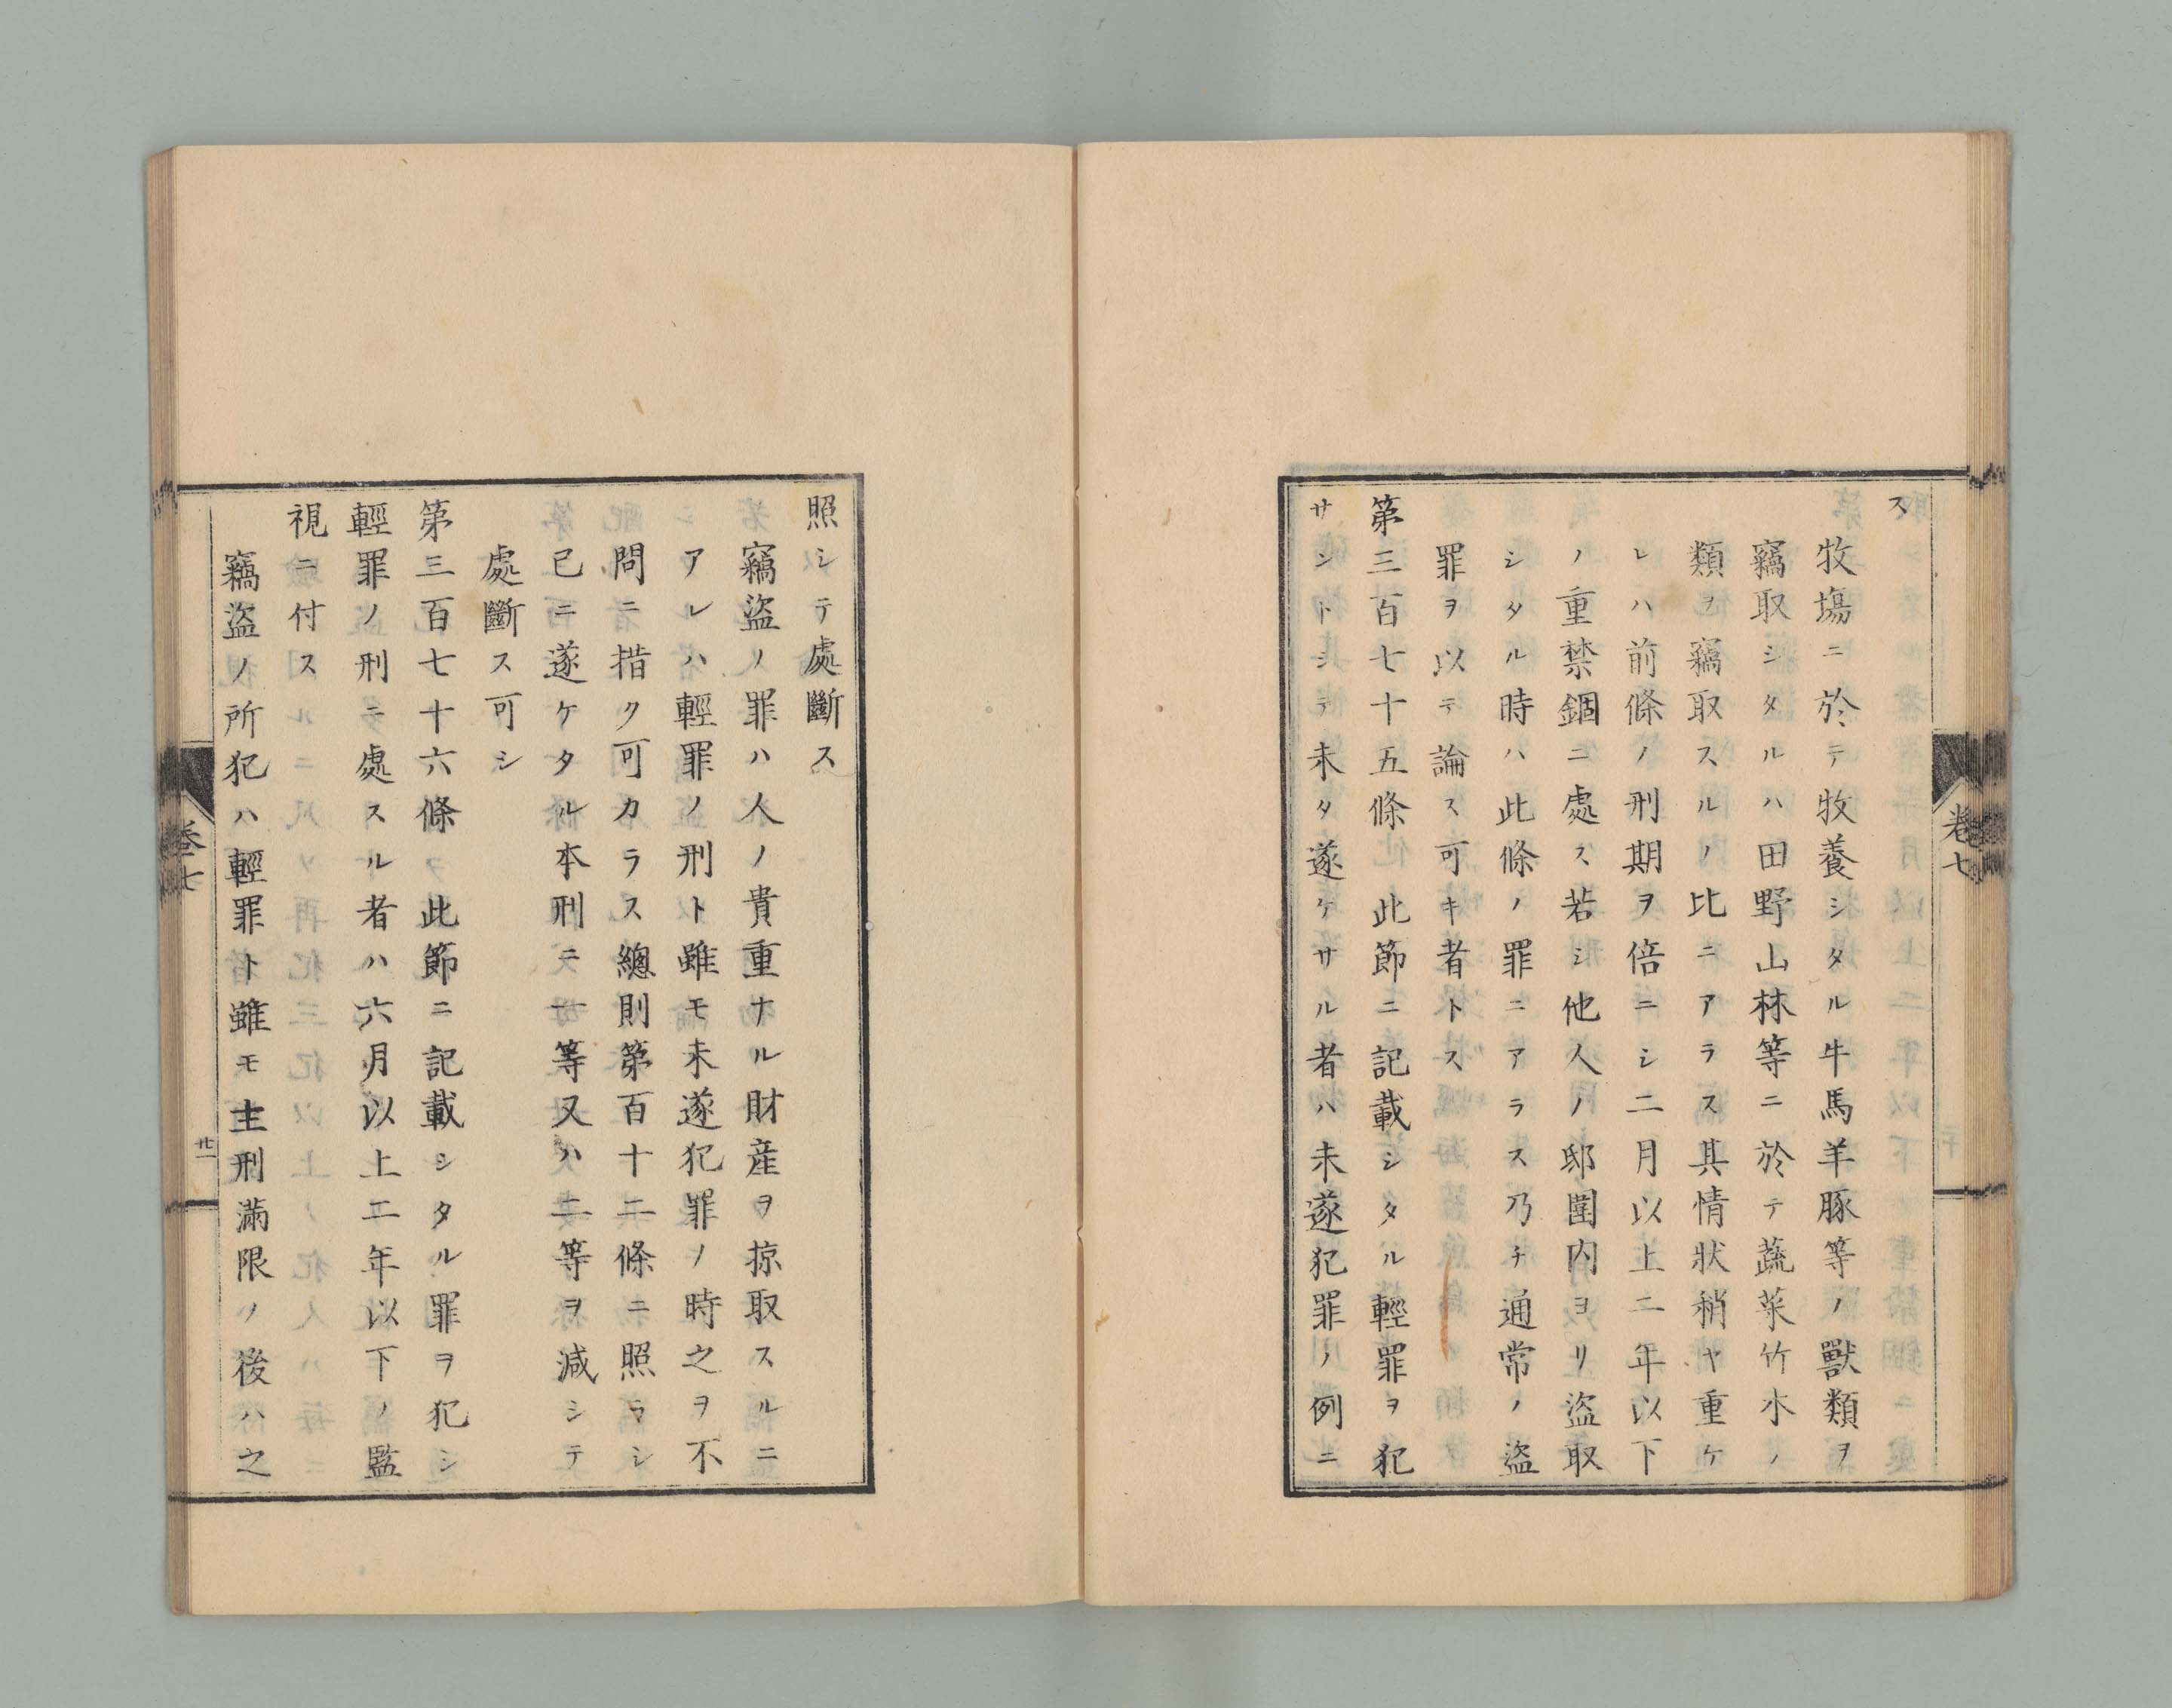 ス
牧塲ニ於テ牧養シタル牛馬羊豚等ノ獸類ヲ
竊取シタルハ田野山林等ニ於テ蔬菜竹木ノ
類ヲ竊取スルノ比ニアラス其情狀稍ヤ重ケ
レハ前條ノ刑期ヲ倍ニシ二月以上二年以下
ノ重禁錮ニ處ス若シ他人ノ邸圍内ヨリ盜取
シタル時ハ此條ノ罪ニアラス乃チ通常ノ盜
罪ヲ以テ論ス可キ者トス
第三百七十五條 此節ニ記載シタル輕罪ヲ犯
サントシテ未タ遂ケサル者ハ未遂犯罪ノ例ニ
卷七
照シテ處斷ス
竊盜ノ罪ハ人ノ貴重ナル財産ヲ掠取スルニ
アレハ輕罪ノ刑ト雖モ未遂犯罪ノ時之ヲ不
問ニ措ク可カラス總則第百十二條ニ照ラシ
已ニ遂ケタル本刑ニ一等又ハ二等ヲ減シテ
處斷ス可シ
第三百七十六條 此節ニ記載シタル罪ヲ犯シ
輕罪ノ刑ニ處スル者ハ六月以上二年以下ノ監
視ニ付ス
竊盜ノ所犯ハ輕罪ト雖モ主刑滿限ノ後ハ之
卷七
廿一